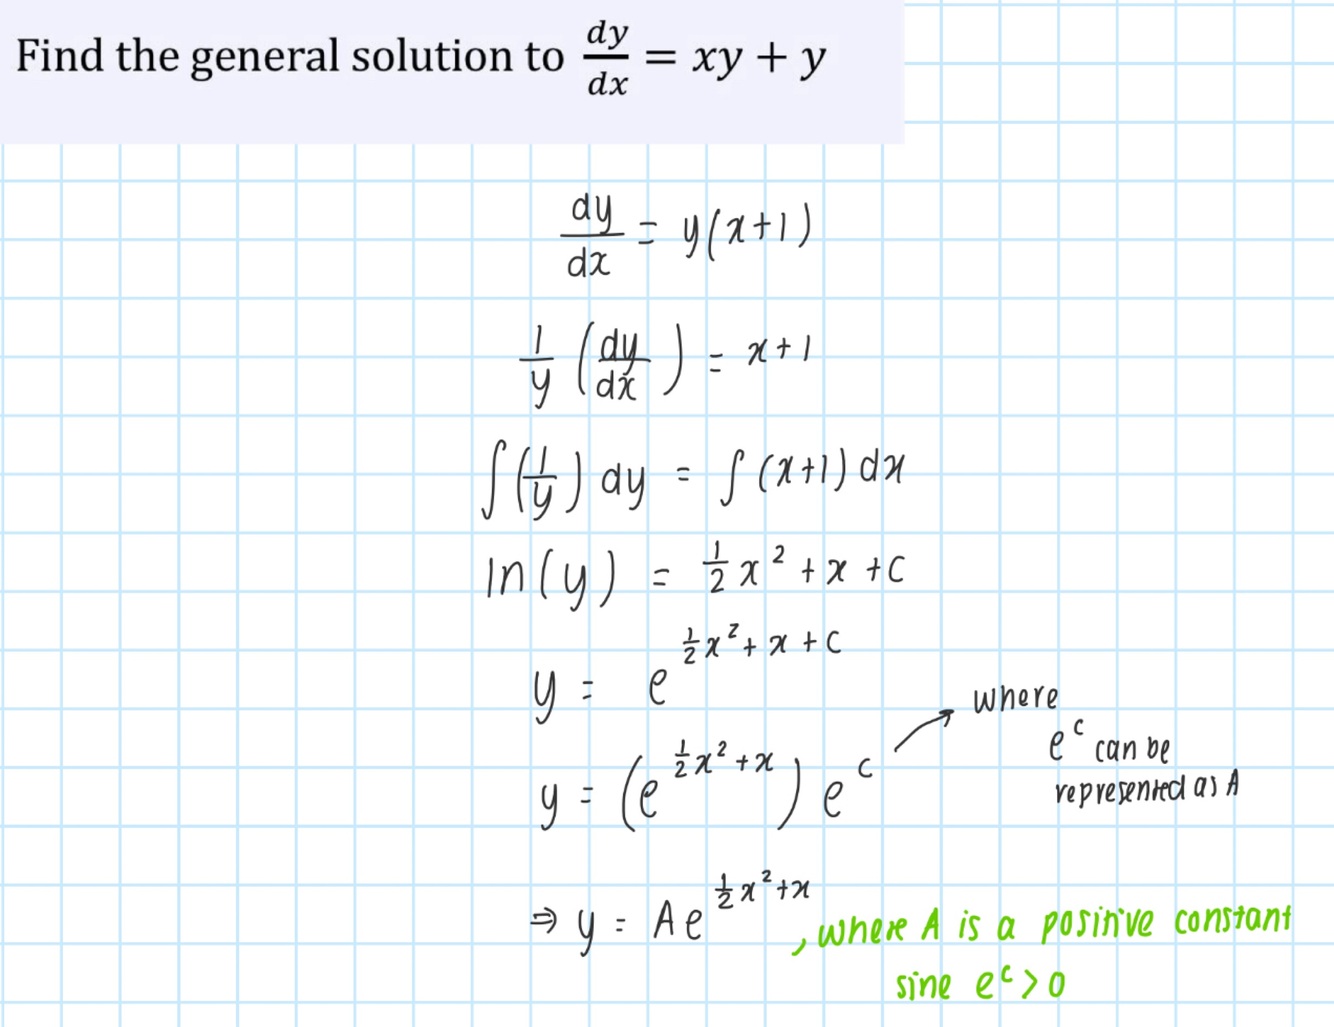 Find the general solution to dy/dx = xy + y
dy/dx = y(x+1)
1/y (dy/dx) = x+1
∫(1/y) dy = ∫(x+1) dx
ln(y) = ½x² + x + c
y = e^(½x² + x + c)
y = (e^(½x² + x)) e^c
where
e^c can be
represented as A
⇒ y = Ae^(½x² + x)
, where A is a positive constant
sine e^c > 0